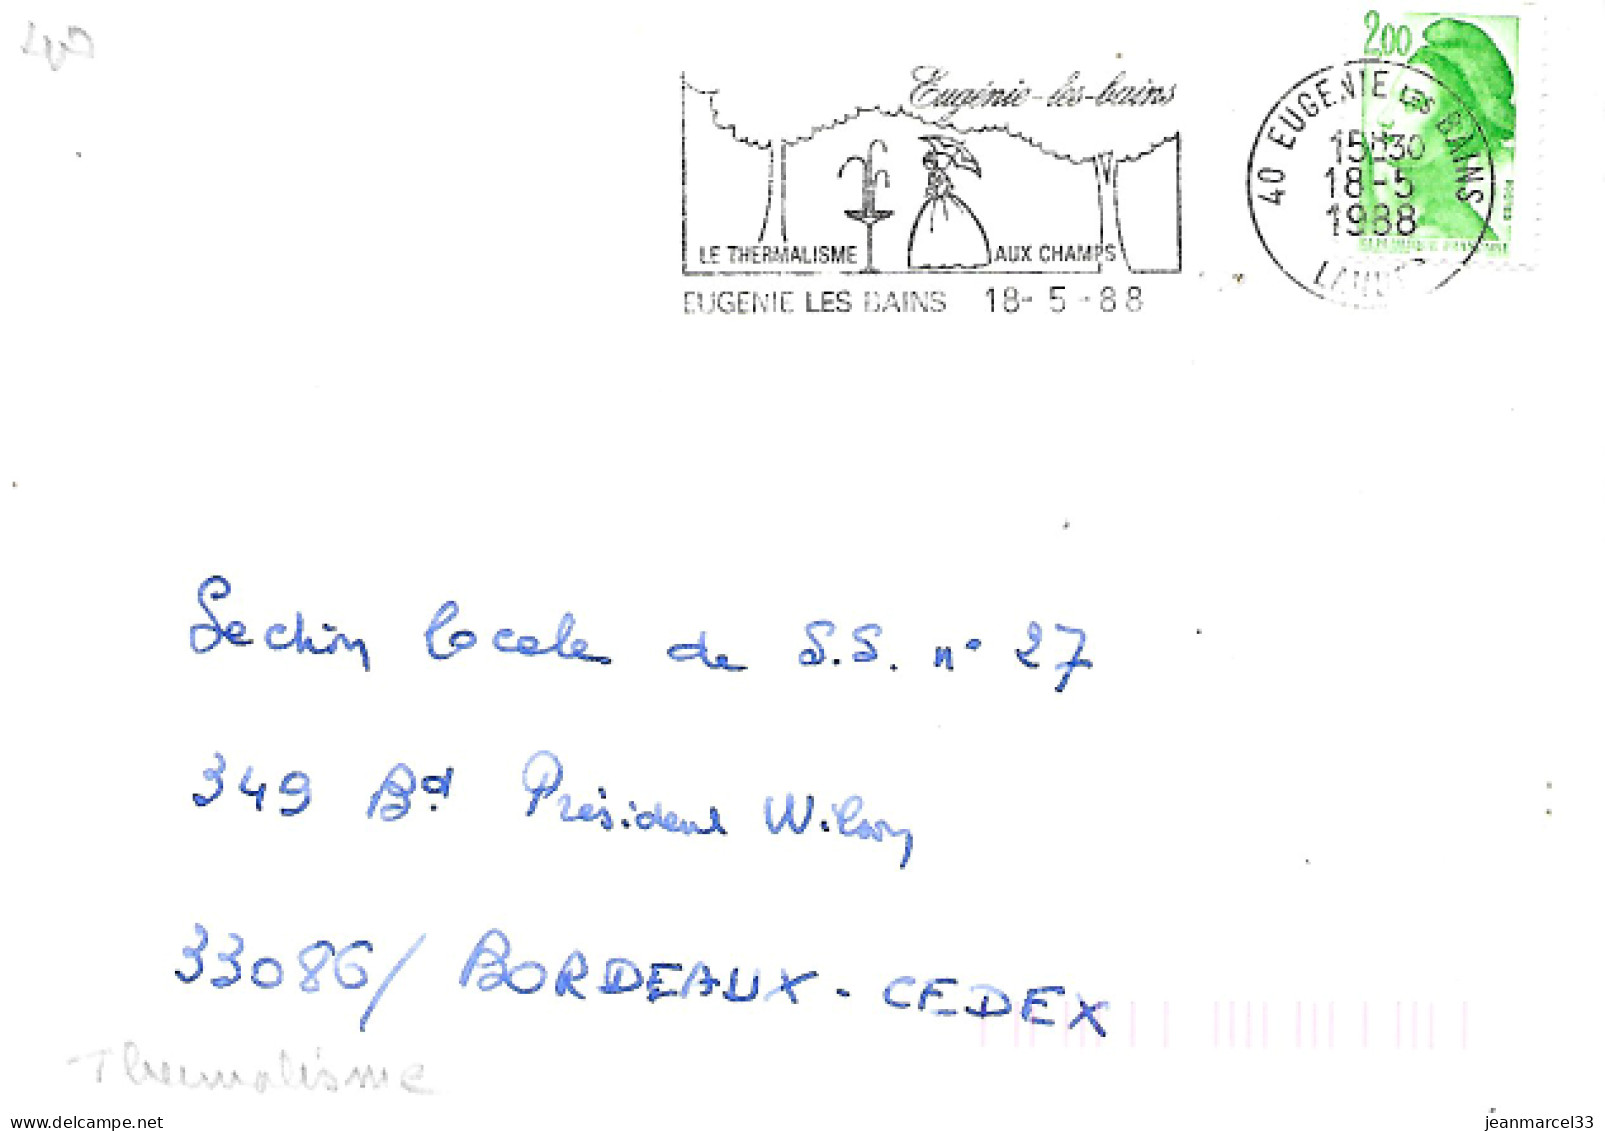 2,00
Eugénie-les-bains
40 EUGENIE LES BAINS
15H30
18-5
1988
LANDES
LE THERMALISME AUX CHAMPS
EUGENIE LES BAINS 18-5-88
Section locale de S.S. n° 27
349 Bd Président Wilson
33086/ BORDEAUX-CEDEX
Thermalisme
www.delcampe.net
jeanmarcel33